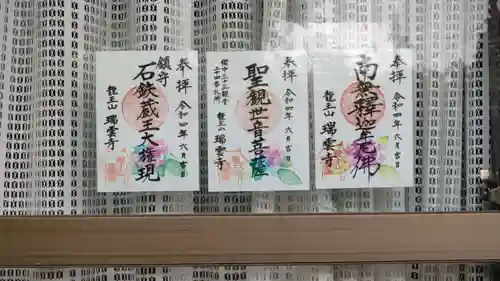 奉拝
令和四年六月吉日
鎮守
石鉄蔵王大権現
龍王山
瑞雲寺
奉拝
令和四年六月吉日
聖観世音菩薩
瑞雲寺
奉拝
令和四年六月吉日
南無釋迦牟尼佛
龍王山
瑞雲寺